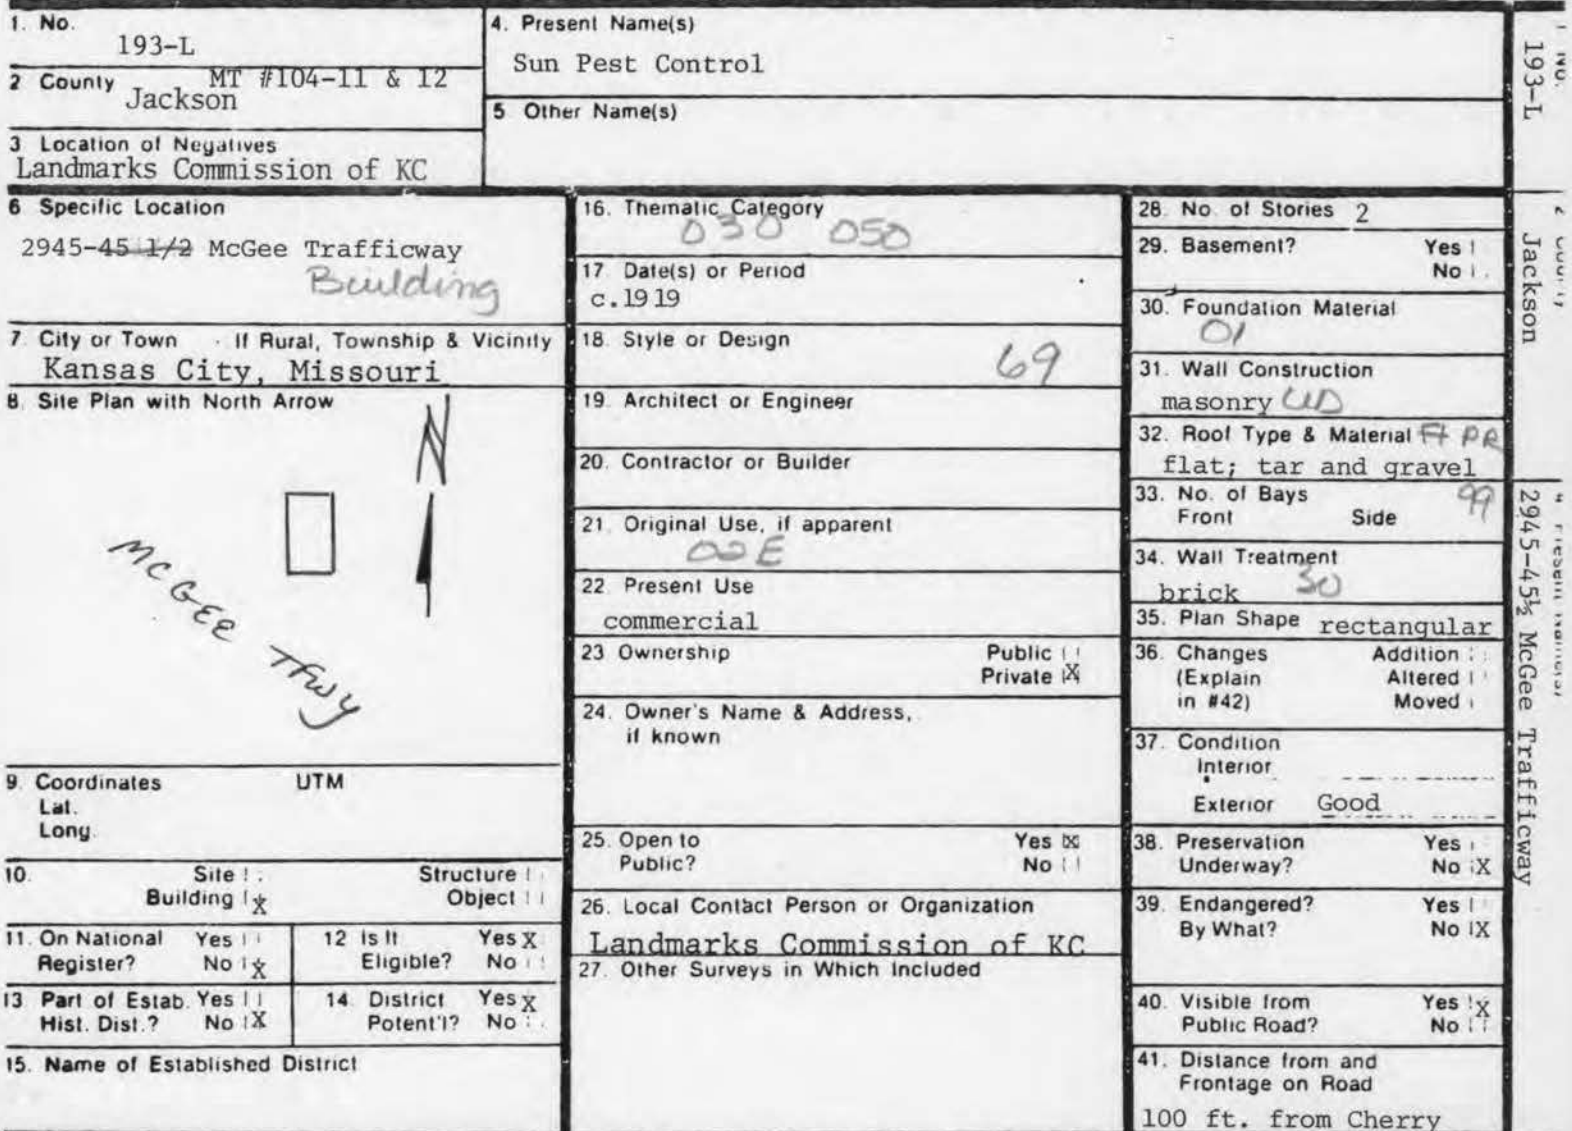 1. No.
193-L
2 County MT #104-11 & 12
Jackson
3 Location of Negatives
Landmarks Commission of KC
4. Present Name(s)
Sun Pest Control
5 Other Name(s)
6 Specific Location
2945-45 1/2 McGee Trafficway
Building
7. City or Town If Rural, Township & Vicinity
Kansas City, Missouri
8. Site Plan with North Arrow
N
McGEE TFWY
9. Coordinates UTM
Lat.
Long.
10. Site Structure
Building X Object
11. On National Yes
Register? No X
12 Is It Yes X
Eligible? No
13 Part of Estab. Yes
Hist. Dist.? No X
14. District Yes X
Potent'l? No
15. Name of Established District
16. Thematic Category
030 050
17 Date(s) or Period
c.1919
18. Style or Design
69
19. Architect or Engineer
20. Contractor or Builder
21. Original Use, if apparent
02E
22 Present Use
commercial
23 Ownership Public
Private X
24. Owner's Name & Address,
if known
25. Open to Yes X
Public? No
26. Local Contact Person or Organization
Landmarks Commission of KC
27. Other Surveys in Which Included
28. No. of Stories 2
29. Basement? Yes
No
30. Foundation Material
01
31. Wall Construction
masonry UD
32. Roof Type & Material Ft PR
flat; tar and gravel
33. No. of Bays 99
Front Side
34. Wall Treatment
brick 30
35. Plan Shape rectangular
36. Changes Addition
(Explain Altered
in #42) Moved
37. Condition
Interior
Exterior Good
38. Preservation Yes
Underway? No X
39. Endangered? Yes
By What? No X
40. Visible from Yes X
Public Road? No
41. Distance from and
Frontage on Road
100 ft. from Cherry
193-L
Jackson
2945-45½ McGee Trafficway